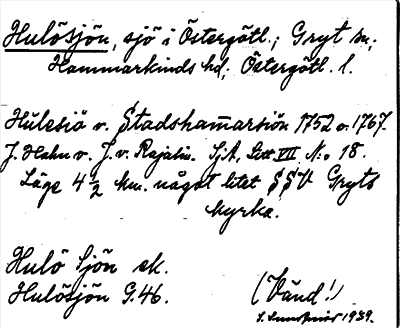 Hulösjön, sjö i Östergötl.; Gryt sn;
Hammarkinds hd; Östergötl. l.
Hulesiö v. Stadshamarsiön 1752 o. 1767.
J. Hahn v. J. v. Rajalin. SjA, Litt VII N:o 18.
Läge 4 1/2 km. något litet SSV Gryts
kyrka.
Hulö Sjön ek.
Hulösjön G.46.
(Vänd!)
1939.